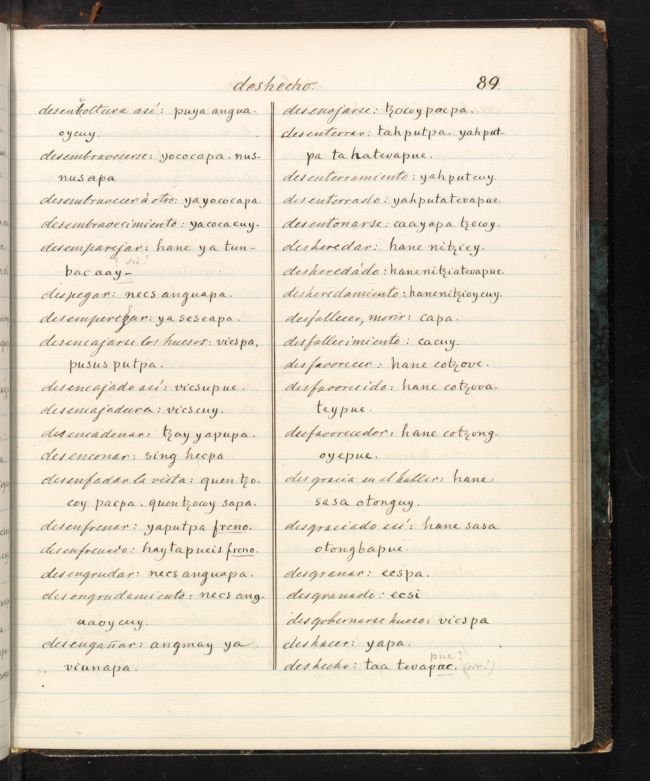 deshecho.
89
desenboltura así: puya angua-
oycuy.
desembravecerse: yococapa. nus-
nusapa
desembravecer à otro: yayococapa
desembravecimiento: yacocacuy.
desemparejar: hane ya tun-
bac aay- sic!
despegar: necs anguapa.
desemperegar: ya seseapa.
desencajarse los huesos: vicspa,
pusus putpa.
desencajado así: vicsupue.
desencajadura: vicscuy.
desencadenar: tzay yapupa.
desenconar: sing hecpa
desenfadar la vista: quen tzo-
coy pacpa. quen tzocoy sapa.
desenfrenar: yaputpa freno.
desenfrenado: haytapueis freno.
desengrudar: necs anguapa.
desengrudamiento: necs ang-
uaoycuy.
desengañar: angmay ya
viunapa.
desenojarse: tzocoy pacpa.
desenterrar: tahputpa. yahput-
pa ta hatevapue.
desenterramiento: yahputcuy.
desenterrado: yahputatevapue.
desentonarse: caayapa tzocoy.
desheredar: hane nitziey.
desheredado: hane nitziatevapue.
desheredamiento: hane nitzioycuy.
desfallecer, morir: capa.
desfallecimiento: cacuy.
desfavorecer: hane cotzove.
desfavorecido: hane cotzova.
teypue.
desfavorecedor: hane cotzong-
oyepue.
desgracia en el hablar: hane
sasa otonguy.
desgraciado así: hane sasa
otongbapue.
desgranar: ecspa.
desgranado: ecsi
desgobernarse hueso: vicspa
deshacer: yapa.
deshecho: taa tevapac. pue? (sic!)